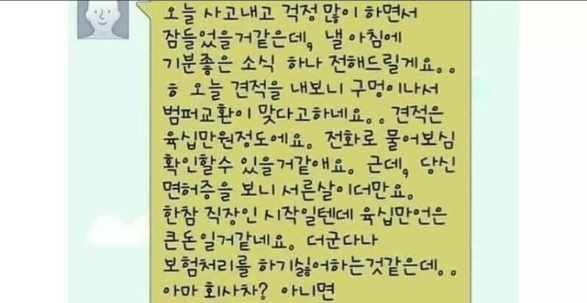 오늘 사고내고 걱정 많이 하면서
잠들었을거같은데, 낼 아침에
기분좋은 소식 하나 전해드릴게요..
ㅎ 오늘 견적을 내보니 구멍이나서
범퍼교환이 맞다고하네요.. 견적은
육십만원정도에요. 전화로 물어보심
확인할수 있을거같애요. 근데, 당신
면허증을 보니 서른살이더만요.
한참 직장인 시작일텐데 육십만언은
큰돈일거같네요. 더군다나
보험처리를 하기싫어하는것같은데..
아마 회사차? 아니면